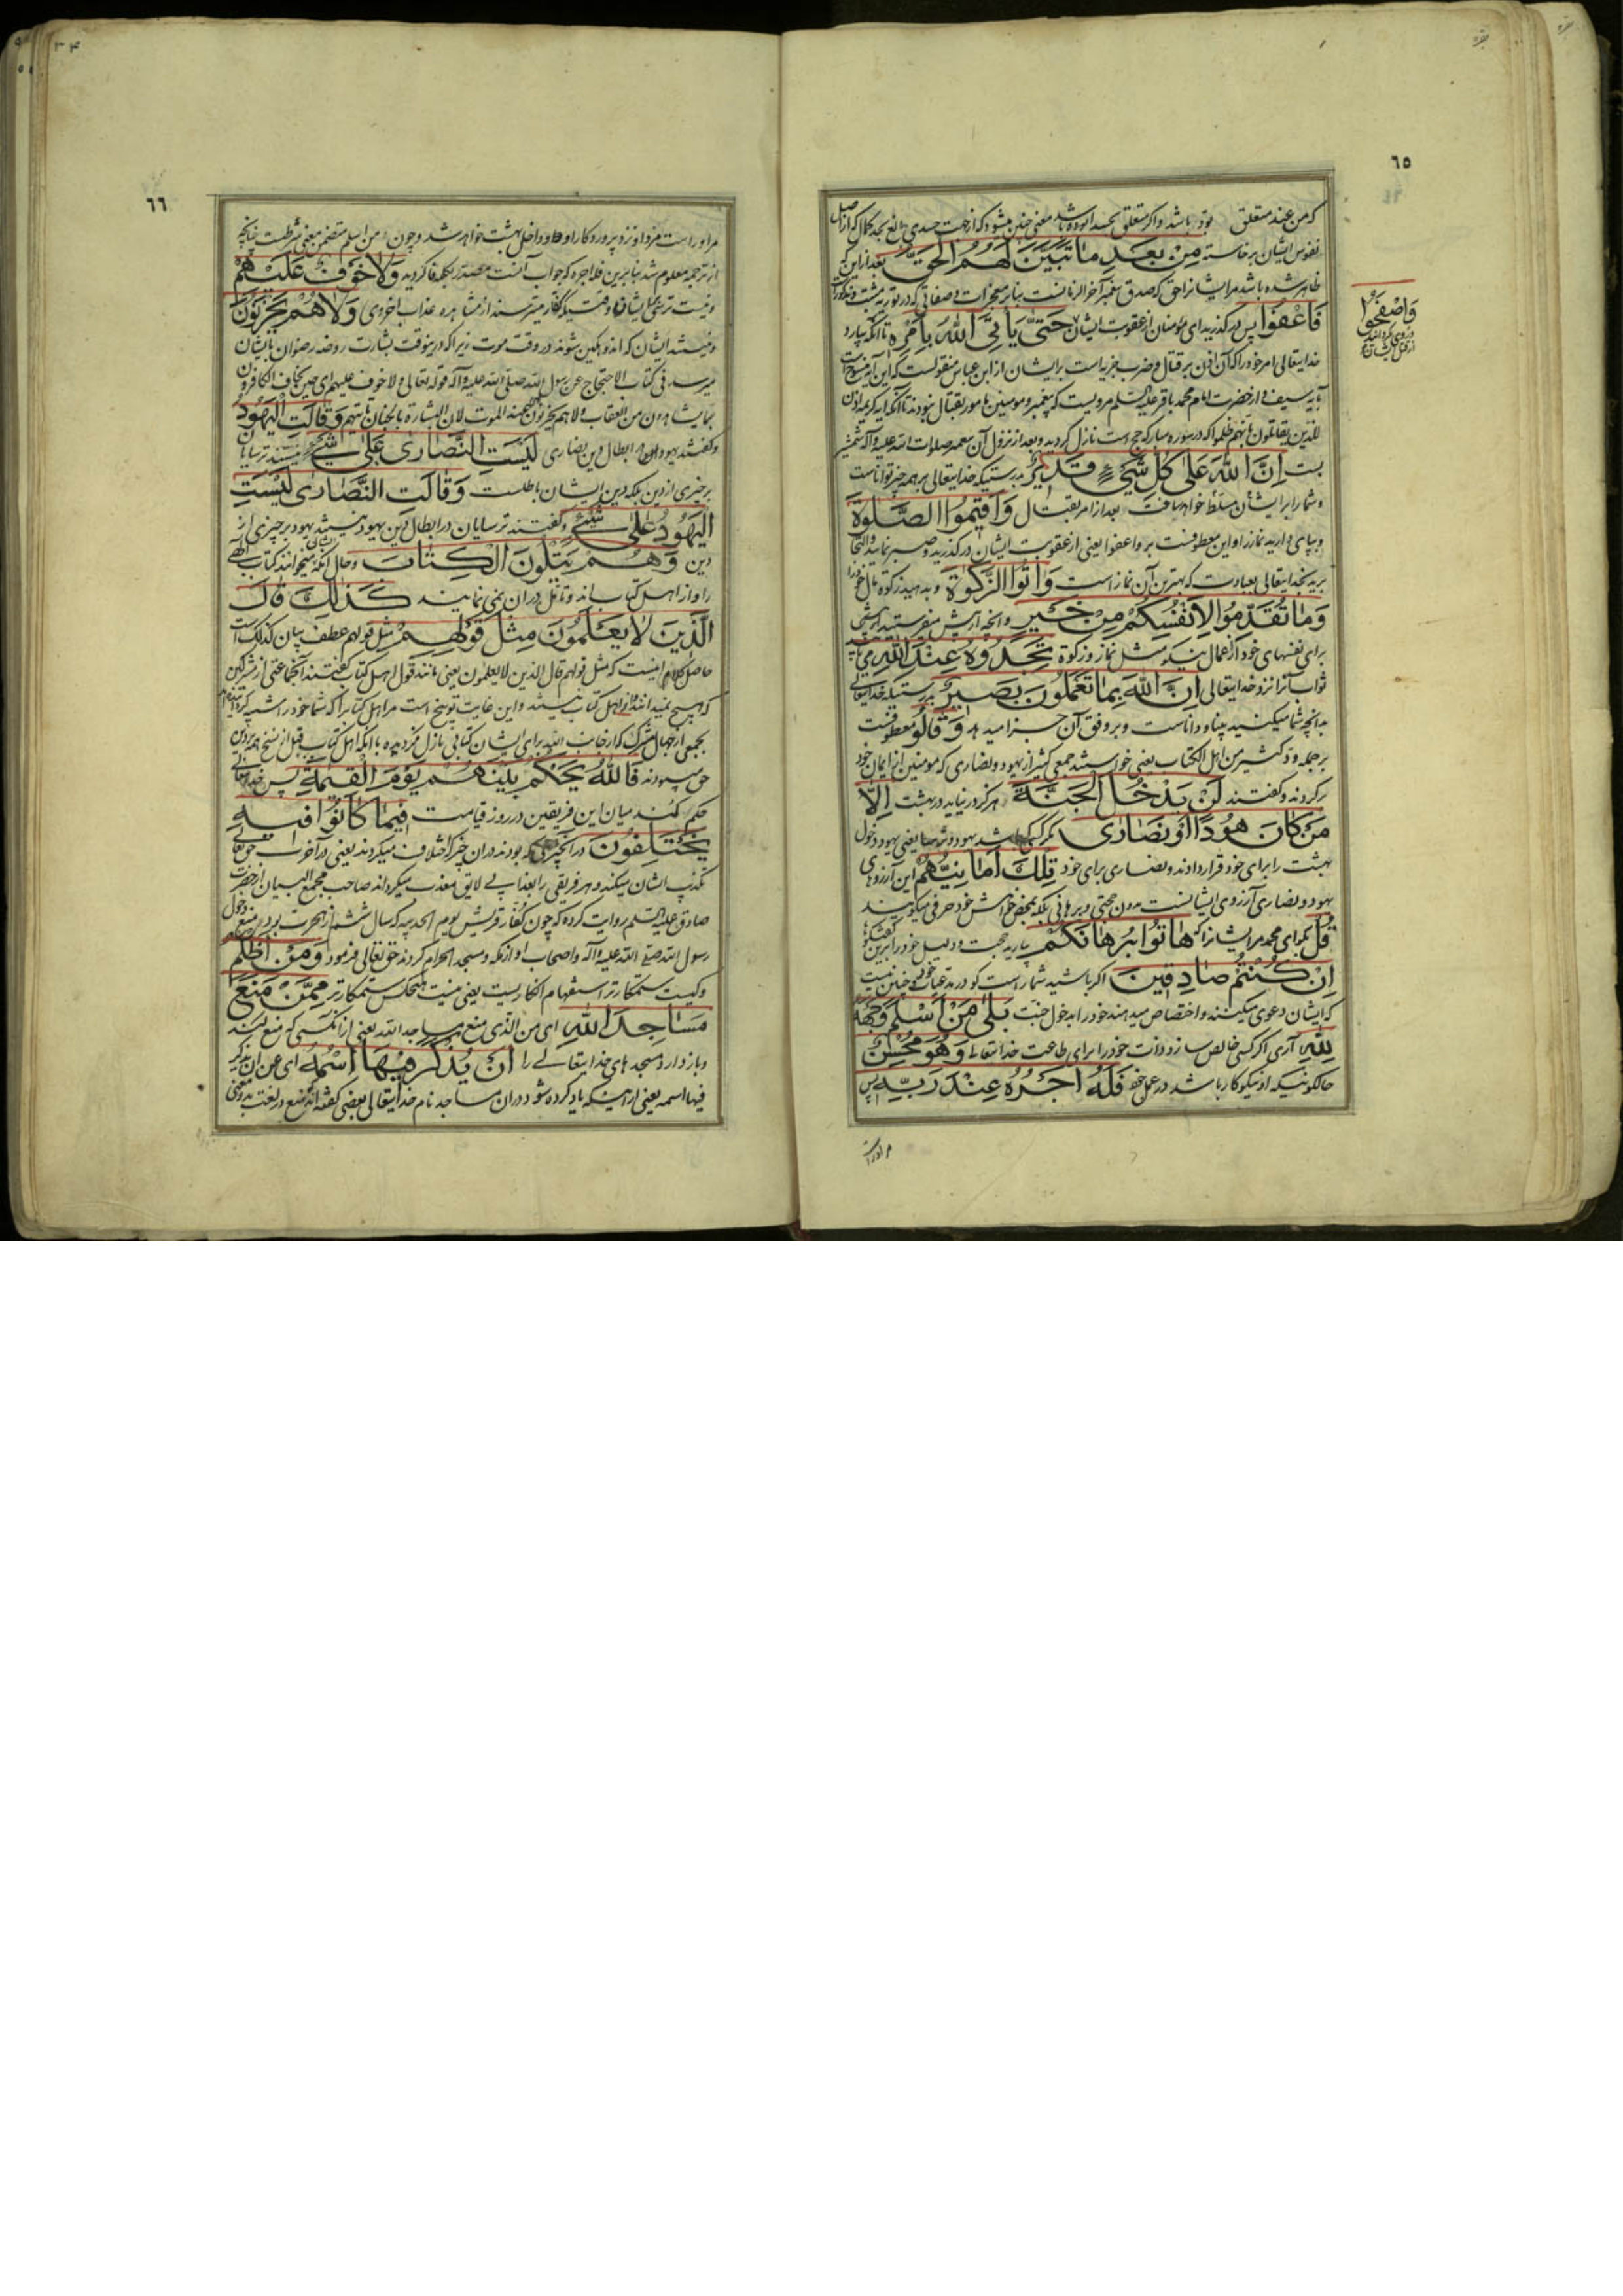 ٦٥
که من عند متعلق بود باشد و اگر متعلق بحسد ا بوده باشد معنی چنین میشود که از جهت حسدی بالغ بحد کمال که از اصل
نفوس ایشان برخاسته مِنْ بَعْدِ مَا تَبَيَّنَ لَهُمُ الْحَقُّ بعد از این که
ظاهر شده باشد مر ایشانرا حق که صدق پیغمبر آخر الزمانست بنابر معجزات و صفاتی که در توریه مثبت و مذکور است
فَاعْفُوا پس درگذرید ای مؤمنان از عقوبت ایشان حَتَّىٰ يَأْتِيَ اللَّهُ بِأَمْرِهِ تا آنکه بیارد
وَاصْفَحُوا
و روی گردانید
خدایتعالی امر خود را که آن اذن بر قتال و ضرب جزیه است بر ایشان از ابن عباس منقولست که این آیه منسوخ است
بآیه سیف و از حضرت امام محمد باقر علیه السلم مرویست که پیغمبر و مومنین مامور بقتال نبودند تا آنکه آیه کریمه اذن
للذین یقاتلون بانهم ظلموا که در سوره مبارکه حج است نازل گردید و بعد از نزول آن پیغمبر صلوات الله علیه و آله شمشیر
بست إِنَّ اللَّهَ عَلَىٰ كُلِّ شَيْءٍ قَدِيرٌ بدرستیکه خدایتعالی بر همه چیز تواناست
و شما را بر ایشان مسلط خواهد ساخت بعد از امر بقتال وَأَقِيمُوا الصَّلَوةَ
و بپای دارید نماز را و این معطوفست بر و اعفوا یعنی از عقوبت ایشان درگذرید و صبر نمایید و التجا
برید بخدایتعالی بعبادت که بهترین آن نماز است وَآتُوا الزَّكَوةَ و بدهید زکوة مال خود را
وَمَا تُقَدِّمُوا لِأَنْفُسِكُمْ مِنْ خَيْرٍ و آنچه از پیش میفرستید
برای نفسهای خود از اعمال نیکو مثل نماز و زکوة تَجِدُوهُ عِنْدَ اللَّهِ می یابید
ثواب آنرا نزد خدایتعالی إِنَّ اللَّهَ بِمَا تَعْمَلُونَ بَصِيرٌ بدرستیکه خدایتعالی
بدانچه شما میکنید بینا و داناست و بر وفق آن جزا میدهد وَقَالُوا معطوفست
بر جمله ود کثیر من اهل الکتاب یعنی خواستند جمعی کثیر از یهود و نصاری که مومنین از ایمان خود
برگردند و گفتند لَنْ يَدْخُلَ الْجَنَّةَ هرگز در نیاید در بهشت إِلَّا
مَنْ كَانَ هُودًا أَوْ نَصَارَىٰ مگر کسی باشد یهود و ترسا یعنی یهود دخول
بهشت را برای خود قرار دادند و نصاری برای خود تِلْكَ أَمَانِيُّهُمْ این آرزوهای
یهود و نصاری آرزوی ایشانست بدون حجتی و برهانی بلکه بمحض خواهش خود حرفی میگویند
قُلْ بگو ای محمد مر ایشانرا که هَاتُوا بُرْهَانَكُمْ بیارید حجت و دلیل خود را برین
إِنْ كُنْتُمْ صَادِقِينَ اگر باشید شما راست گو در مدعیات خود و چنین نیست
که ایشان دعوی میکنند و اختصاص میدهند خود را بدخول جنت بَلَىٰ مَنْ أَسْلَمَ وَجْهَهُ
لِلَّهِ آری اگر کسی خالص سازد ذات خود را برای طاعت خدایتعالی وَهُوَ مُحْسِنٌ
حالکونیکه او نیکوکار باشد در عمل خود فَلَهُ أَجْرُهُ عِنْدَ رَبِّهِ پس
٣٤
٦٦
مر او راست مزد او نزد پروردگار او و داخل بهشت خواهد شد و چون من اسلم متضمن معنی شرطست چنانچه
از ترجمه معلوم شد بنابرین فله اجره که جواب آنست مصدر بکلمه فا گردیده وَلَا خَوْفٌ عَلَيْهِمْ
و نیست ترسی بر ایشان وقتیکه کفار میترسند از مشاهده عذاب اخروی وَلَا هُمْ يَحْزَنُونَ
و نیستند ایشان که اندوهگین شوند در وقت موت زیرا که در ینوقت بشارت روضه رضوان بایشان
میرسد فی کتاب الاحتجاج عن رسول الله صلی الله علیه و آله قوله تعالی و لا خوف علیهم ای حین یخاف الکافرون
بما یشاهدون من العقاب و لا هم یحزنون عند الموت لان البشارة بالجنان تاتیهم وَقَالَتِ الْيَهُودُ
و گفتند یهود در ابطال دین نصاری لَيْسَتِ النَّصَارَىٰ عَلَىٰ شَيْءٍ نیستند ترسایان
بر چیزی از دین بلکه دین ایشان باطلست وَقَالَتِ النَّصَارَىٰ لَيْسَتِ
الْيَهُودُ عَلَىٰ شَيْءٍ و گفتند ترسایان در ابطال دین یهود نیستند یهود بر چیزی از
دین وَهُمْ يَتْلُونَ الْكِتَابَ و حال آنکه ایشان میخوانند کتاب الهی
را و از اهل کتاب اند و تامل در آن نمی نمایند كَذَٰلِكَ قَالَ
الَّذِينَ لَا يَعْلَمُونَ مِثْلَ قَوْلِهِمْ مثل قولهم عطف بیان کذلک است
حاصل کلام اینست که مثل قولهم قال الذین لا یعلمون یعنی مانند قول اهل کتاب گفتند آنجماعتی از مشرکین
که هیچ نمیدانند و از اهل کتاب نیستند و این غایت توبیخ است مر اهل کتابرا که شما خود را شبیه کرده اید
بجمعی از جهال مشرک که از جانب الله برای ایشان کتابی نازل نگردیده با آنکه اهل کتاب قبل از نسخ همه بر دین
حق میبودند فَاللَّهُ يَحْكُمُ بَيْنَهُمْ يَوْمَ الْقِيمَةِ پس خدایتعالی
حکم کند میان این فریقین در روز قیامت فِيمَا كَانُوا فِيهِ
يَخْتَلِفُونَ در آنچیزی که بودند در آن چیز اختلاف میکردند یعنی در آخرت حق تعالی
تکذیب ایشان میکند و هر فریقی را بعذابی لایق معذب میگرداند صاحب مجمع البیان از حضرت
صادق علیه السلم روایت کرده که چون کفار قریش یوم الحدیبیه که سال ششم از هجرت بود منع دخول
رسول الله صلی الله علیه و آله و اصحاب او از مکه و مسجد الحرام کردند حق تعالی فرمود وَمَنْ أَظْلَمُ
و کیست ستمکارتر استفهام انکاریست یعنی نیست هیچکس ستمکارتر مِمَّنْ مَنَعَ
مَسَاجِدَ اللَّهِ ای من الذی منع مساجد الله یعنی از آنکسی که منع کند
و باز دارد مسجدهای خدایتعالی را أَنْ يُذْكَرَ فِيهَا اسْمُهُ ای عن ان یذکر
فیها اسمه یعنی از اینکه یاد کرده شود در آن مساجد نام خدایتعالی بعضی گفته اند منع در لغت بدو معنی